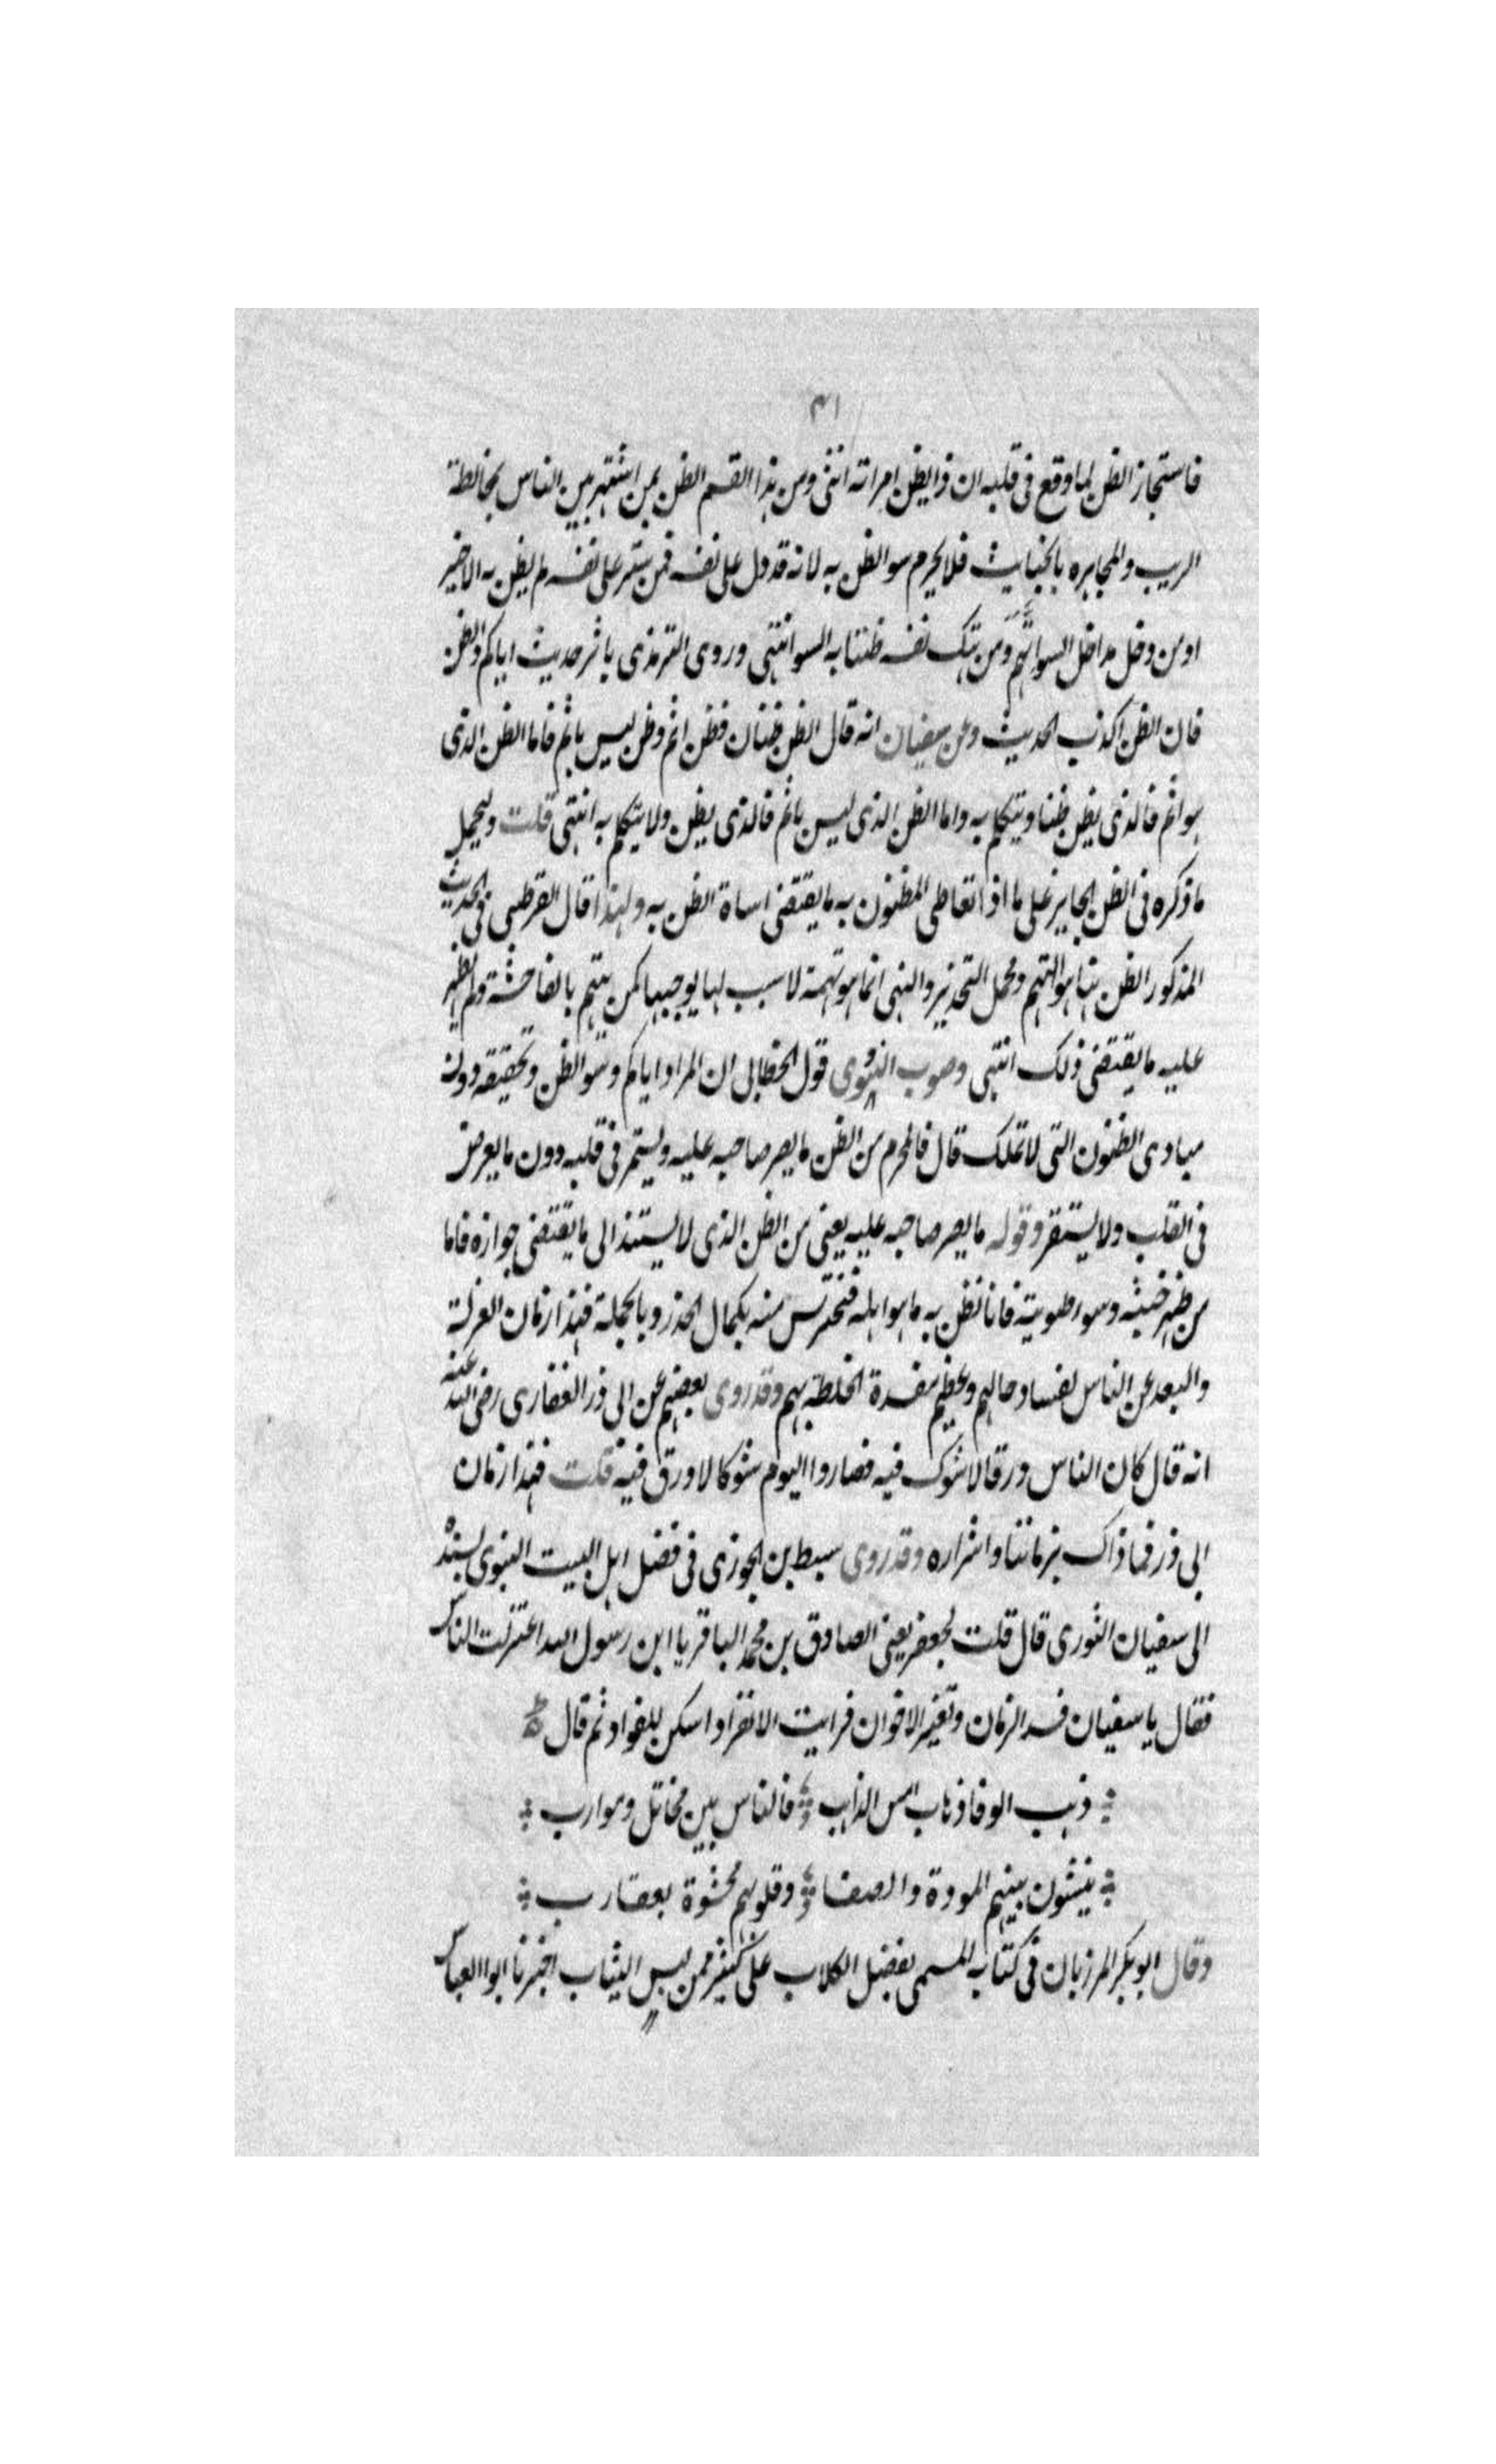 ٣١
فاستجاز الظن لما وقع فى قلبه ان ذا بطن امراته انثى ومن هذا القسم الظن بمن اشتهر بين الناس بمخالطة
الريب والمجاهره بالخبايث فلا يحرم سو الظن به لانه قد دل على نفسه فمن ستر على نفسه لم يظن به الا خير
او من دخل مداخل السو اتهم ومن هتك نفسه ظننا به السو انتهى وروى الترمذى باثر حديث اياكم والظن
فان الظن اكذب الحديث وعن سفيان انه قال الظن ظنان فظن اثم وظن ليس باثم فاما الظن الذى
هو اثم فالذى يظن ظنا ويتكلم به واما الظن الذى ليس باثم فالذى يظن ولا يتكلم به انتهى قلت وليحمل
ما ذكره فى الظن الجايز على ما اذا تعاطى المظنون به ما يقتضى اساة الظن به ولهذا قال القرطبى فى الحديث
المذكور الظن هنا هو التهم ومحل التحذير والنهى انما هو تهمة لا سبب لها يوجبها كمن يتهم بالفاحشة ولم يظهر
عليه ما يقتضى ذلك انتهى وصوب النووى قول الخطابى ان المراد اياكم وسو الظن وتحقيقه دون
مبادى الظنون التى لا تملك قال فالمحرم من الظن ما يصر صاحبه عليه ويستمر فى قلبه دون ما يعرض
فى القلب ولا يستقر وقوله ما يصر صاحبه عليه يعنى من الظن الذى لا يستند الى ما يقتضى جوازه فاما
من ظهر خبثه وسو طويته فانا نظن به ما هو اهله فنحترس منه بكمال الحذر وبالجملة فهذا زمان العزلة
والبعد عن الناس لفساد حالهم وعظيم مفسدة الخلطة بهم وقد روى بعضهم عن ابى ذر الغفارى رضى الله عنه
انه قال كان الناس ورقا لا شوك فيه فصاروا اليوم شوكا لا ورق فيه قلت فهذا زمان
ابى ذر فما ذاك بزماننا واشراره وقد روى سبط بن الجوزى فى فضل اهل البيت النبوى بسنده
الى سفيان الثورى قال قلت لجعفر يعنى الصادق بن محمد الباقر يا ابن رسول الله اعتزلت الناس
فقال يا سفيان فسد الزمان وتغير الاخوان فرايت الانفراد اسكن للفواد ثم قال
ذهب الوفا ذهاب امس الذاهب فالناس بين مخاتل وموارب
يفشون بينهم المودة والصفا وقلوبهم محشوة بعقارب
وقال ابو بكر المرزبان فى كتابه المسمى بفضل الكلاب على كثير ممن لبس الثياب اخبرنا ابوا العباس